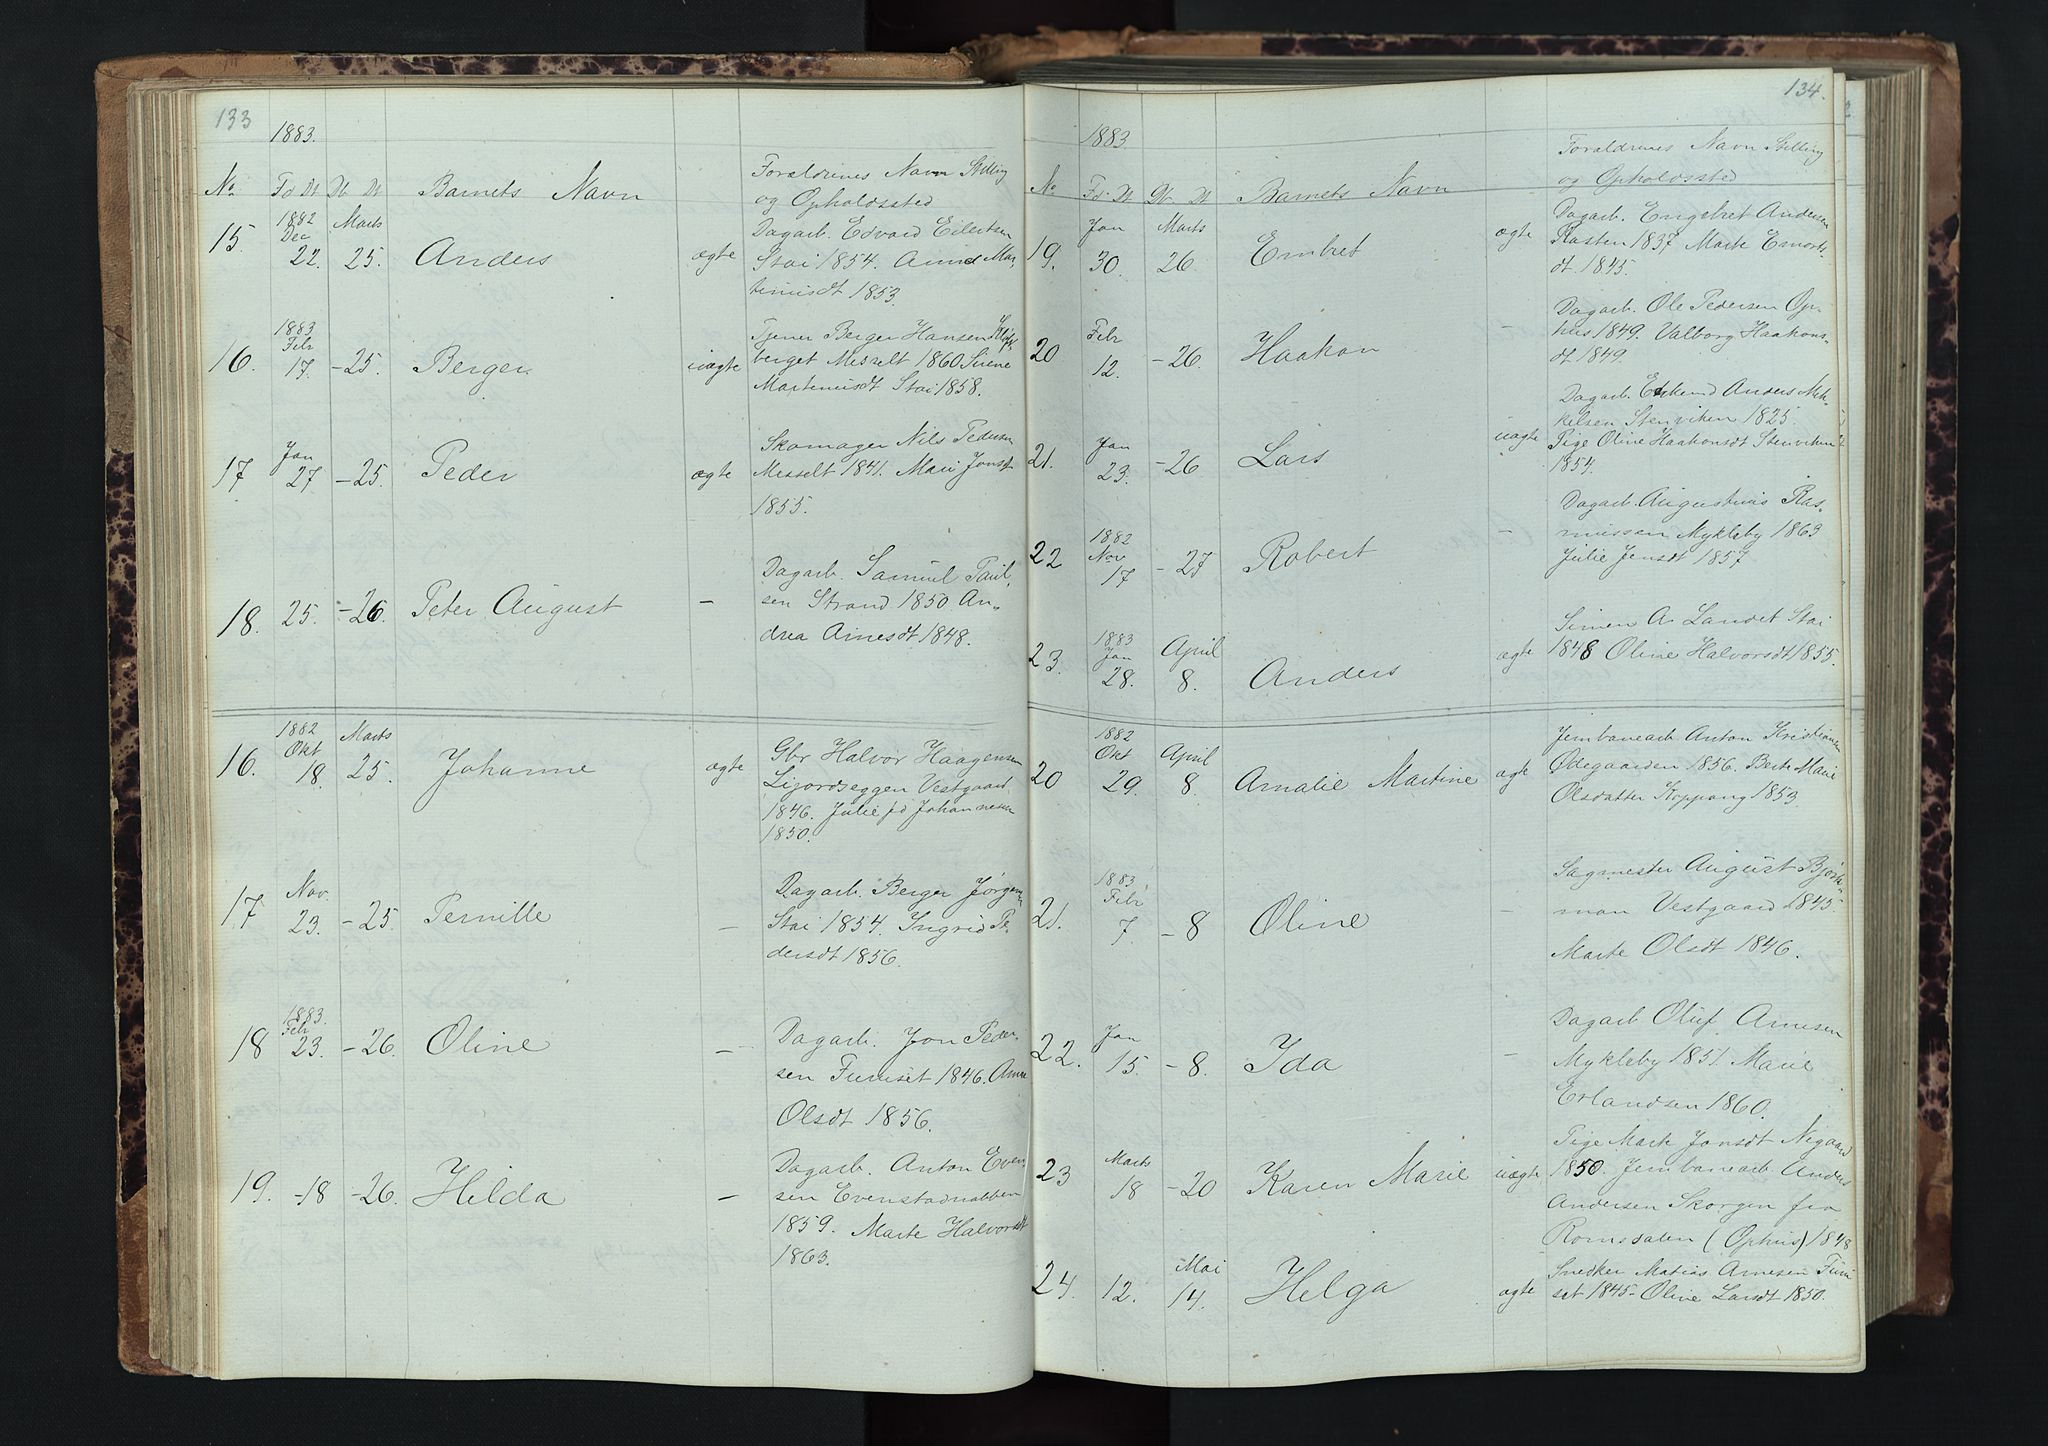 133
1883.
No Fd Dt Db Dt Barnets Navn Forældrenes Navn Stilling
og Opholdssted
15. 1882 Dec 22. Marts 25. Anders ægte Dagarb. Edvard Eilertsen
Stai 1854. Anne Mar-
tinusdt 1853.
16. 1883 Febr 17. - 25. Berger uægte Tjener Berger Hansen
berget Messelt 1860 Sirene
Martenusdt Stai 1858.
17 Jan 27 - 25. Peder ægte Skomager Nils Pedersen
Messelt 1841. Mari Jonsdt
1855.
18. 25. - 26 Peter August - Dagarb. Samuel Paul-
sen Strand 1850 An-
drea Arnesdt 1848.
16. 1882 Okt 18. Marts 25. Johanne ægte Gbr Halvor Haagensen
Ligordseggen Vestgaard
1846. Julie fd Johannesen
1850.
17 Nov. 23. - 25. Pernille - Dagarb. Berger Jørgensen
Stai 1854. Ingrid Pe-
dersdt 1856.
18 1883. Febr 23. - 26. Oline - Dagarb. Jon Peder-
sen Furuset 1846. Anne
Olsdt 1856.
19. - 18 - 26. Hilda - Dagarb. Anton Even-
sen Evenstadnabben
1859. Marte Halvorsdt
1863.
134.
1883
No Fd. Dt Db Dt Barnets Navn Forældrenes Navn Stilling
og Opholdssted
19. Jan 30. Marts 26. Embret ægte Dagarb. Engebret Andersen
Rasten 1837 Marte
dt. 1845.
20 Febr 12. - 26. Haakon - Dagarb. Ole Pedersen Op-
hus 1849. Valborg Haakons-
dt 1849.
21. Jan 23. - 26 Lars uægte Dagarb. Enkemd Anders Mik-
kelsen Stenviken 1825.
Pige Oline Haakonsdt Stenviken
1854.
22 1882 Nov 17 - 27 Robert - Dagarb. Augustinus Ras-
mussen Mykleby 1863
Julie Jensdt 1857.
23. 1883 Jan 28. April 8. Anders ægte Simen A. Landet Stai
1848 Oline Halvorsdt 1855.
20 1882 Okt 29. April 8. Amalie Martine ægte Jernbanearb Anton Kristiansen
Ødegaarden 1856. Berte Marie
Olsdatter Koppang 1853.
21. 1883 Febr 7. - 8 Oline - Sagmester August Björk-
man Vestgaard 1845.
Marte Olsdt 1846.
22. Jan 15. - 8. Ida - Dagarb Oluf Arnesen
Mykleby 1851. Marie
Erlandsen 1860.
23 Marts 18 - 20 Karen Marie uægte Pige Marte Jonsdt Nigaard
1850. Jernbanearb. Anders
Andersen Skorgen fra
Romsdalen (Ophus) 1848
24. 12. Mai 14. Helga ægte Snedker Matias Arnesen Furu
set 1845. Oline Larsdt 1850.